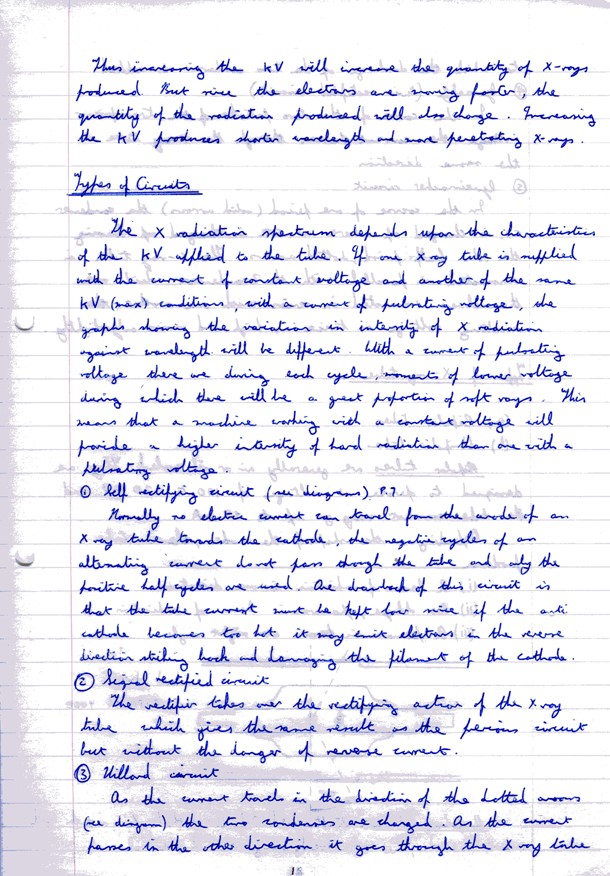 Thus increasing the kV will increase the quantity of X-rays
produced. But since the electrons are moving faster, the
quantity of the radiation produced will also change. Increasing
the kV produces shorter wavelength and more penetrating X-rays.
Types of Circuits
The X radiation spectrum depends upon the characteristics
of the kV applied to the tube. If one X ray tube is supplied
with the current of constant voltage and another of the same
kV (max) conditions, with a current of pulsating voltage, the
graphs showing the variation in intensity of X radiation
against wavelength will be different. With a current of pulsating
voltage there are during each cycle, moments of lower voltage
during which there will be a great proportion of soft rays. This
means that a machine working with a constant voltage will
provide a higher intensity of hard radiation than one with a
pulsating voltage.
① Self rectifying circuit (see diagrams) P.7.
Normally no electric current can travel from the anode of an
X ray tube towards the cathode, the negative cycles of an
alternating current do not pass through the tube and only the
positive half cycles are used. One drawback of this circuit is
that the tube current must be kept low since if the anti
cathode becomes too hot it may emit electrons in the reverse
direction striking back and damaging the filament of the cathode.
② Signal rectified circuit
The rectifier takes over the rectifying action of the X ray
tube which gives the same result as the previous circuit
but without the danger of reverse current.
③ Villard circuit
As the current travels in the direction of the dotted arrows
(see diagram) the two condensers are charged. As the current
passes in the other direction it goes through the X ray tube